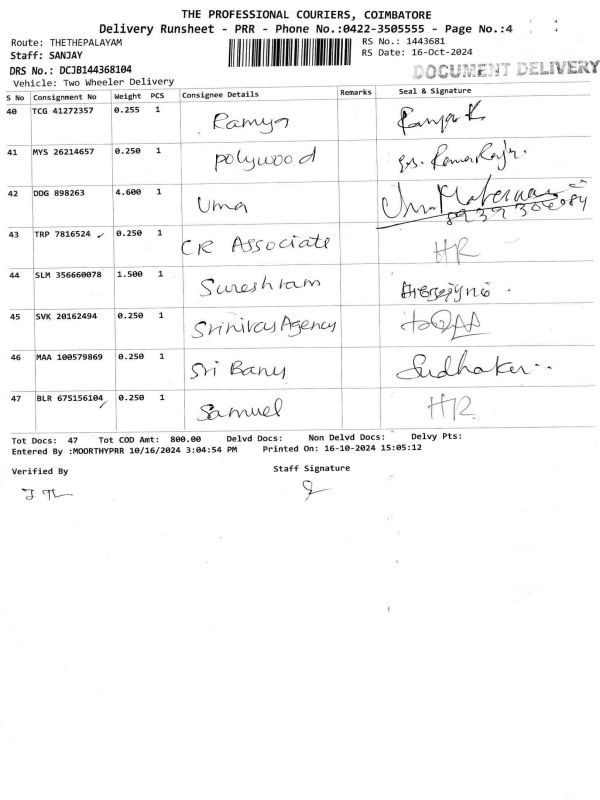 THE PROFESSIONAL COURIERS, COIMBATORE
Delivery Runsheet - PRR - Phone No.:0422-3505555 - Page No.:4
Route: THETHEPALAYAM
RS No.: 1443681
Staff: SANJAY
RS Date: 16-Oct-2024
DRS No.: DCJB144368104
DOCUMENT DELIVERY
Vehicle: Two Wheeler Delivery
S No Consignment No Weight PCS Consignee Details Remarks Seal & Signature
40 TCG 41272357 0.255 1 Ramya Ramya K
41 MYS 26214657 0.250 1 polywood
42 DDG 898263 4.600 1 Uma
43 TRP 7816524 0.250 1 CR Associate HR
44 SLM 356660078 1.500 1 Sureshram
45 SVK 20162494 0.250 1 Srinivas Agency
46 MAA 100579869 0.250 1 Sri Banu Sudhaker
47 BLR 675156104 0.250 1 Samuel HR
Tot Docs: 47 Tot COD Amt: 800.00 Delvd Docs: Non Delvd Docs: Delvy Pts:
Entered By :MOORTHYPRR 10/16/2024 3:04:54 PM Printed On: 16-10-2024 15:05:12
Verified By
Staff Signature